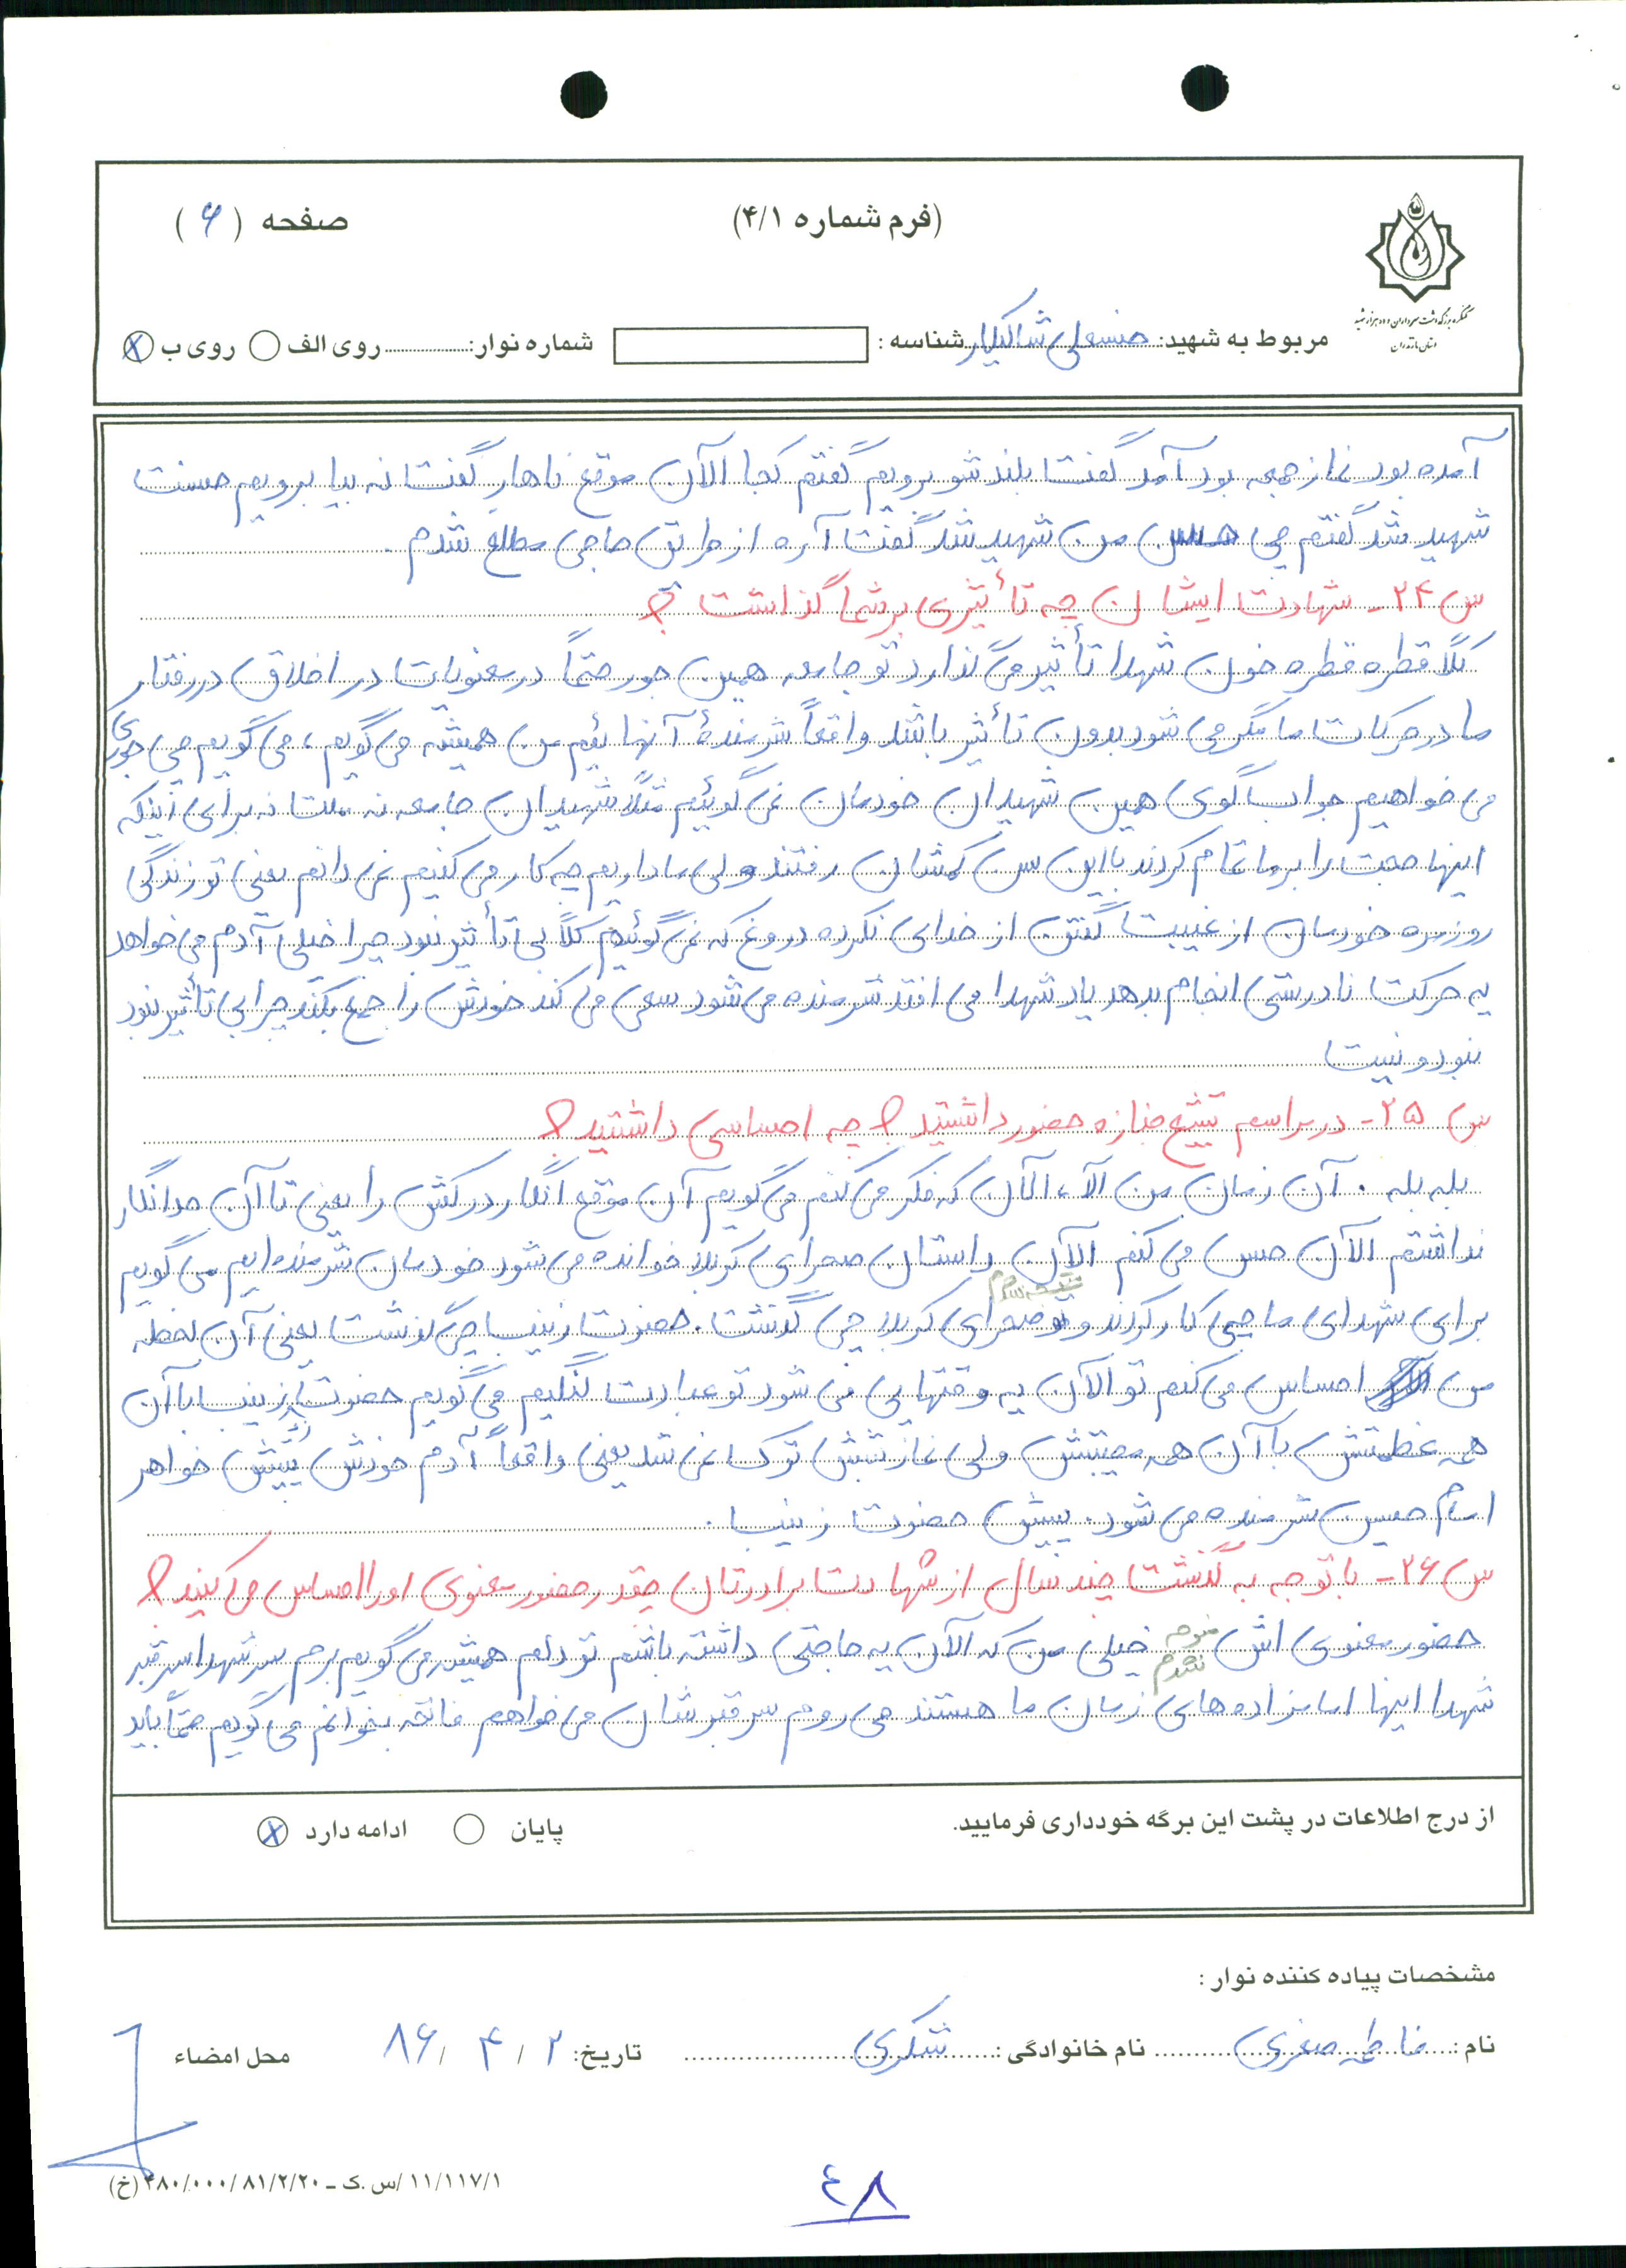 (فرم شماره ۴/۱)
صفحه (۶)
کنگره بزرگداشت سرداران و ده هزار شهید
استان مازندران
مربوط به شهید: حسنعلی شاکیلار شناسه : شماره نوار: روی الف روی ب
آمده بود نماز جمعه بود آمد گفت بلند شو برویم گفتم کجا الآن موقع ناهار گفت نه بیا برویم حسنت
شهید شد گفتم چی حسن من شهید شد گفت آره از طریق حاجی مطلع شدم .
س ۲۴ - شهادت ایشان چه تأثیری بر شما گذاشت ؟
کلاً قطره قطره خون شهدا تأثیر می گذارد تو جامعه همین جور حتماً در معنویات در اخلاق در رفتار
ما در حرکات ما مگر می شود بدون تأثیر باشد واقعاً شرمندۀ آنهائیم من همیشه می گویم ، می گویم چی جوری
می خواهیم جواب گوی همین شهیدان خودمان نمی گوئیم مثلاً شهیدان جامعه نه ملت نه برای اینکه
اینها حجت را بر ما تمام کردند با این سن کمشان رفتند ولی ما داریم چه کار می کنیم نمی دانم یعنی تو زندگی
روزمره خودمان از غیبت گفتن از خدای نکرده دروغ که نمی گوئیم کلاً بی تأثیر نبود چرا خیلی آدم می خواهد
یه حرکت نادرستی انجام بدهد یاد شهدا می افتد شرمنده می شود سعی می کند خودش را جمع بکند چرا بی تأثیر نبود
نبود و نیست
س ۲۵ - در مراسم تشیع جنازه حضور داشتید ؟ چه احساسی داشتید ؟
بله بله . آن زمان من الآ ، الآن که فکر می کنم می گویم آن موقع انگار درکش را یعنی تا آن حد انگار
نداشتم الآن حس می کنم الآن داستان صحرای کربلا خوانده می شود خودمان شرمنده ایم می گویم
برای شهدای ما چی کار کردند و تو صحرای کربلا چی گذشت . حضرت زینب چی گذشت یعنی آن لحظه
من احساس می کنم تو الآن یه وقتهایی می شود تو عبادت تنگیم می گویم حضرت زینب با آن
همه عظمتش با آن همه مصیبتش ولی نماز شبش ترک نمی شد یعنی واقعاً آدم خودش پیش خواهر
امام حسین شرمنده می شود . پیش حضرت زینب .
س ۲۶ - با توجه به گذشت چند سال از شهادت برادرتان چقدر حضور معنوی او را احساس می کنید ؟
حضور معنوی اش متوجه نشدم خیلی من که الآن یه حاجتی داشته باشم تو دلم همیشه می گویم برم سر شهدا سر قبر
شهدا اینها امامزاده های زمان ما هستند می روم سر قبرشان می خواهم فاتحه بخوانم می گویم حتماً باید
از درج اطلاعات در پشت این برگه خودداری فرمایید.
پایان ادامه دارد
مشخصات پیاده کننده نوار :
نام : فاطمه صغری نام خانوادگی : شکری تاریخ: ۲ / ۴ / ۸۶ محل امضاء
۱۱/۱۱۷/۱ /س .ک – ۸۱/۲/۲۰ /۴۸۰/۰۰۰ (خ)
۴۸